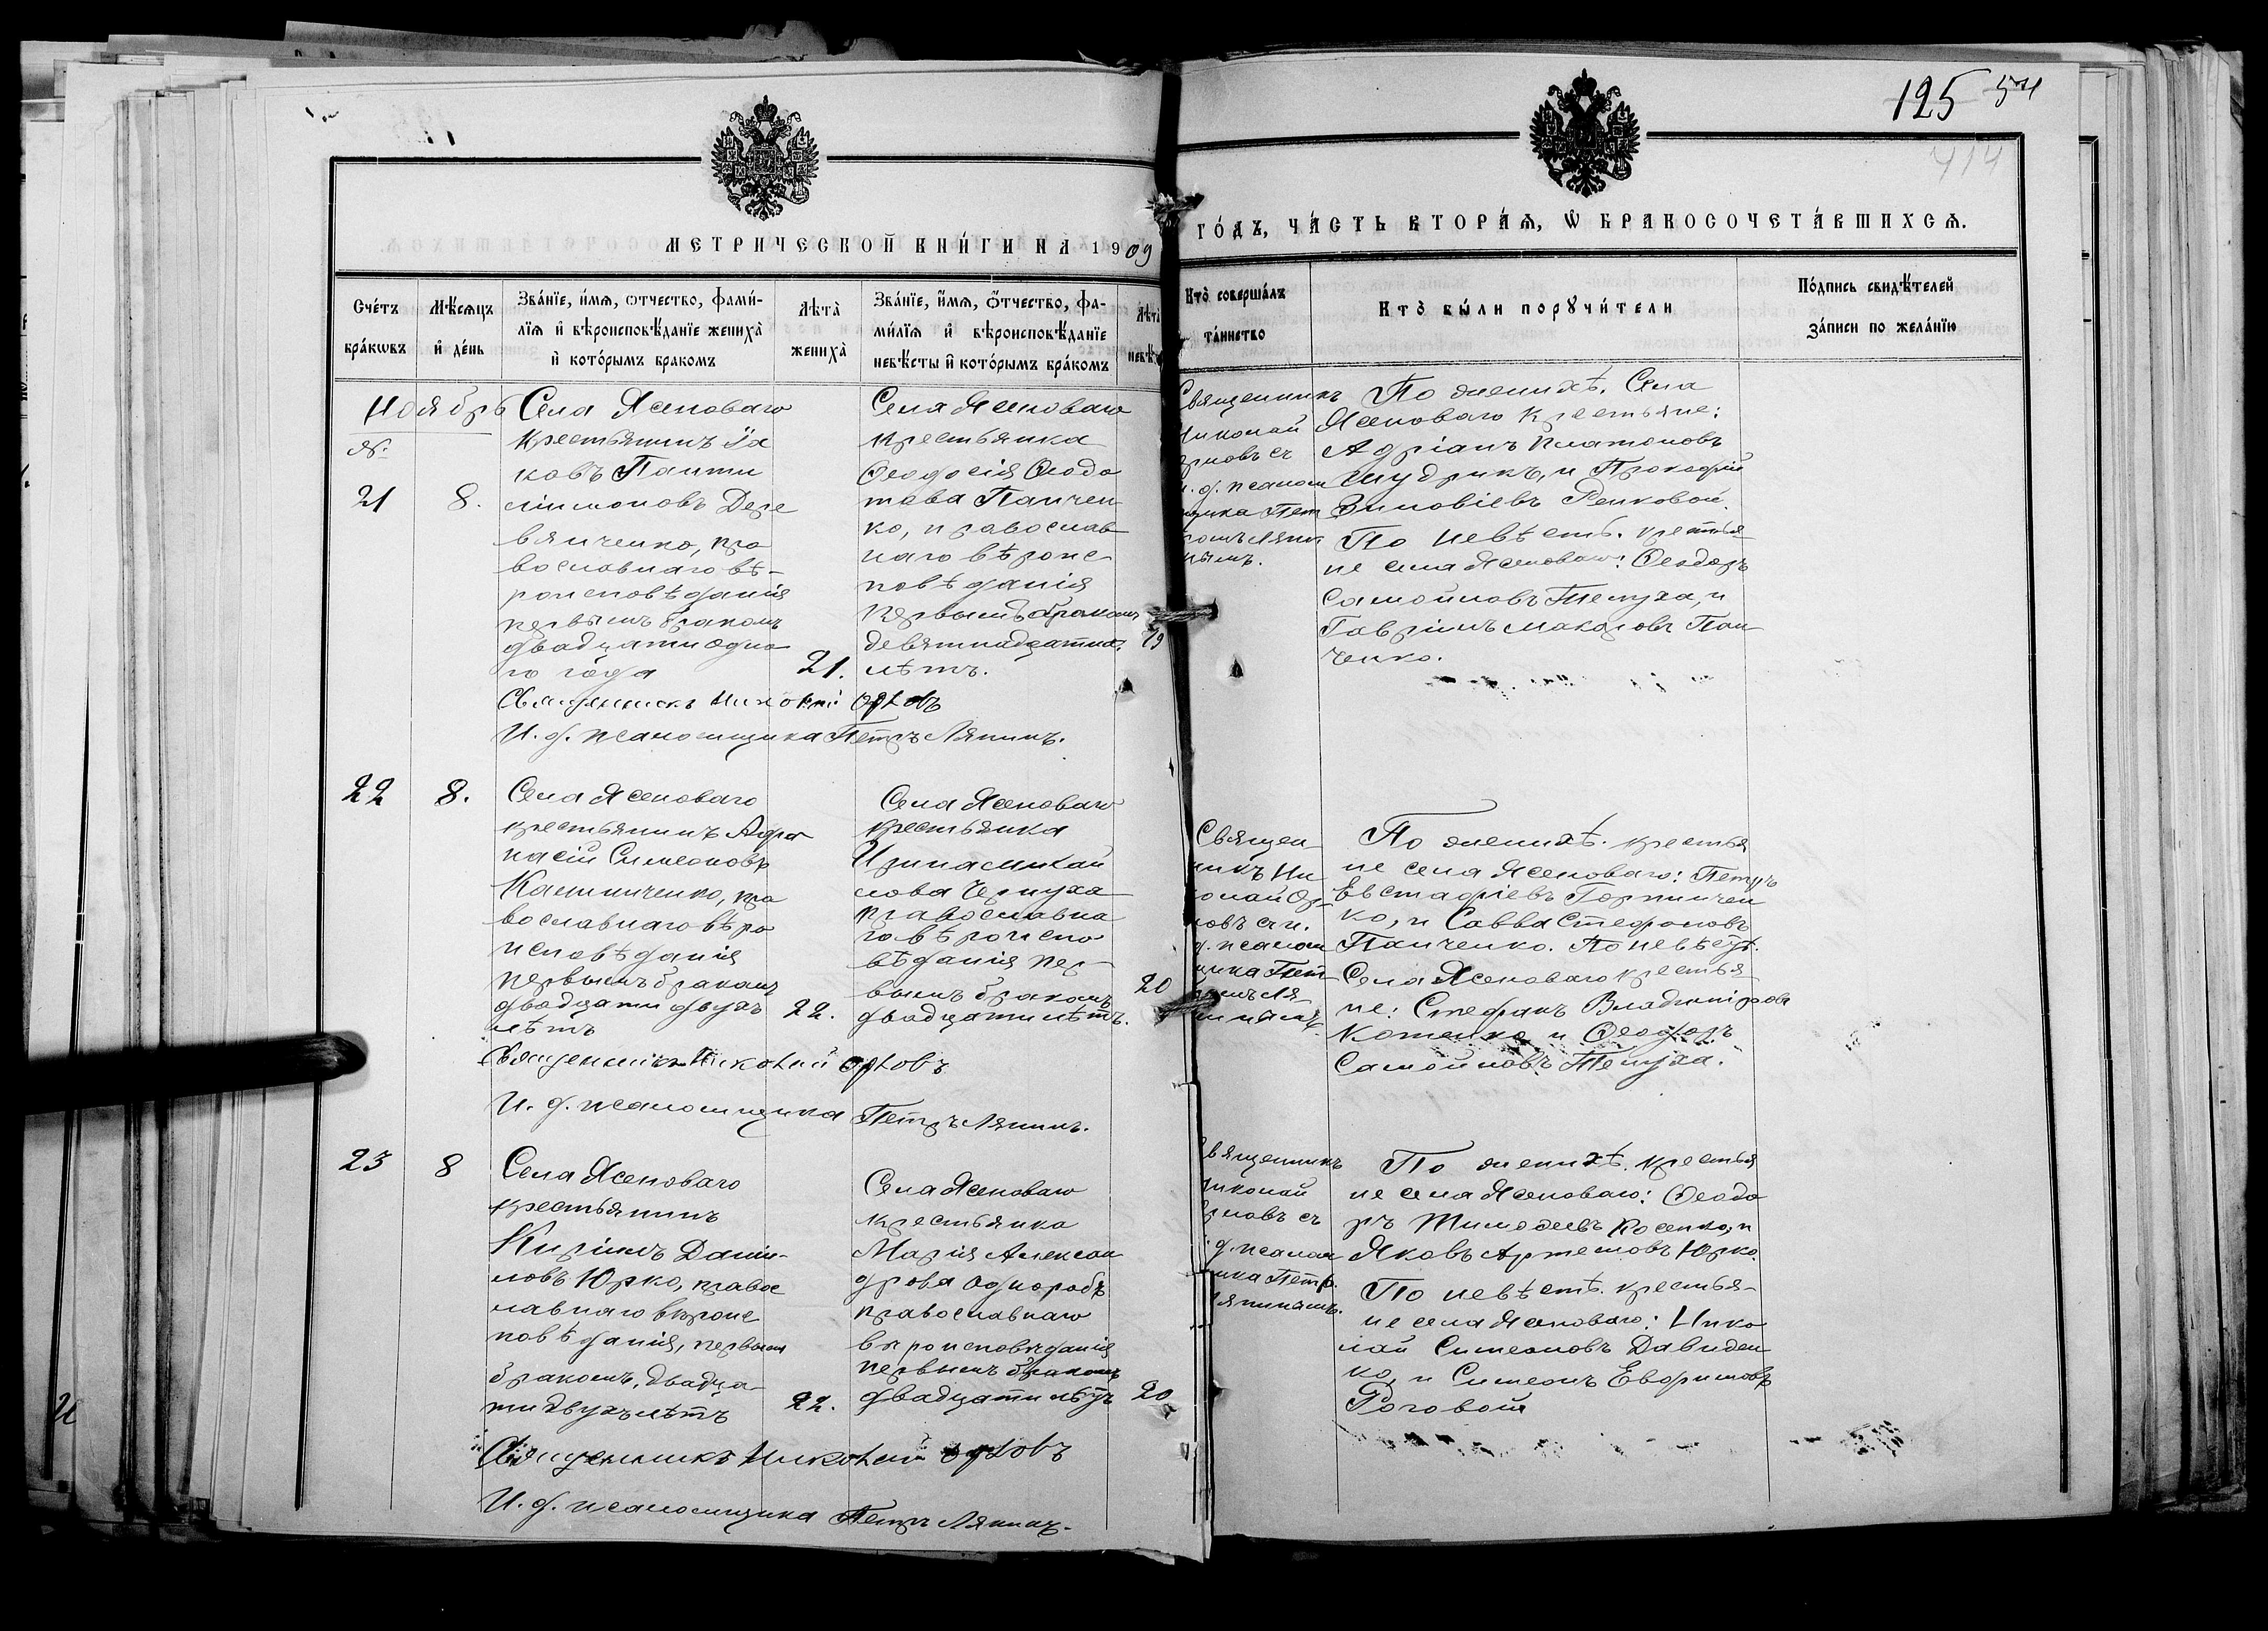 125
414
МЕТРИЧЕСКОЙ КНИ́ГИ НА 1909
ГО́ДЪ, ЧА́СТЬ ВТОРА́Ѧ, Ѡ БРАКОСОЧЕТА́ВШИХСѦ.
Сче́тъ бра́кѡвъ
Мѣ́сяцъ и де́нь
Зва́нїе, и́мѧ, ѻтчество, фами́-
лїѧ и вѣроисповѣ́данїе жениха̀
и кото́рымъ бракомъ
Лѣта̀ жениха̀
Зва́нїе, и́мѧ, ѻ́тчество, фа-
ми́лїѧ и вѣроисповѣ́данїе
невѣ́сты и кото́рымъ бра́комъ
Лѣта
невѣ
Кто̀ соверша́лъ
та́инство
Кто̀ бы́ли порꙋчи́тели
По́дпись свидѣ́телей
за́писи по жела́нїю
Ноябрь
21
8.
Села Ясеноваго
крестьянинъ Іа
ковъ Панти
лиимоновъ Дере
вянченко, пра
вославнаго вѣ-
роисповѣданія
первымъ бракомъ
двадцати одно
го года
21.
Села Ясеноваго
крестьянка
Ѳеодосія Ѳеодо
това Панчен
ко, православ
наго вѣроис-
повѣданія
первымъ бракомъ
девятнадцати
лѣтъ.
19
Священникъ Николай Орловъ
И. д. псаломщика Петръ Ляпинъ.
Священникъ
Николай
Орловъ съ
и. д. псалом
щика Пет
ромъ Ляпи
нымъ.
По женихѣ. Села
Ясеноваго крестьяне:
Адріанъ Платоновъ
Шудрикъ, и Прокофій
Зиновіевъ Ренковой.
По невѣстѣ. крестья
не села Ясеноваго: Ѳеодоръ
Самойловъ Тепуха, и
Гавріилъ Макаровъ Пан
ченко.
22
8.
Села Ясеноваго
крестьянинъ Афа
насій Симеоновъ
Калиниченко, пра
вославнаго вѣро
исповѣданія
первымъ бракомъ
двадцати двухъ
лѣтъ
22.
Села Ясеноваго
крестьянка
Ирина Михай
лова Чепуха
православна
го вѣроиспо
вѣданія пер-
вымъ бракомъ
двадцати лѣтъ.
20
Священникъ Николай Орловъ
И. д. псаломщика Петръ Ляпинъ.
Священ
никъ Ни
колай Ор-
ловъ съ и.
д. псалом
щика Пет
ромъ Ля-
пинымъ.
По женихѣ. крестья
не села Ясеноваго: Петръ
Евстафіевъ Горпинчен
ко, и Савва Стефановъ
Панченко. По невѣстѣ.
Села Ясеноваго крестья-
не: Стефанъ Владиміровъ
Котенко и Ѳеодоръ
Самойловъ Тепуха.
23
8
Села Ясеноваго
крестьянинъ
Кирилъ Даниі-
ловъ Юрко, правос
лавнаго вѣроис
повѣданія, первымъ
бракомъ, двадца-
ти двухъ лѣтъ
22.
Села Ясеноваго
крестьянка
Марія Алексан
дрова Одноробъ
православнаго
вѣроисповѣданія
первымъ бракомъ
двадцати лѣтъ
20
Священникъ Николай Орловъ
И. д. псаломщика Петръ Ляпинъ.
Священникъ
Николай
Орловъ съ
и. д. псалом
щика Петр.
Ляпинымъ.
По женихѣ. крестья
не села Ясеноваго: Ѳеодо
ръ Тимоѳеевъ Косенко, и
Яковъ Артемовъ Юрко.
По невѣстѣ. крестья-
не села Ясеноваго: Нико
лай Симеоновъ Давиден
ко, и Симеонъ Евфимовъ
Роговой